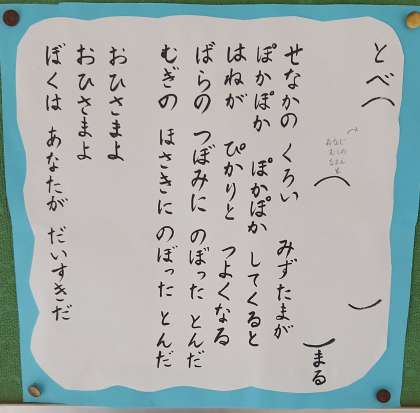 とべ（　　　）
おなじ
むしの
（　　　）まる
せなかの くろい みずたまが
ぽかぽか ぽかぽか してくると
はねが ぴかりと つよくなる
ばらの つぼみに のぼった とんだ
むぎの ほさきに のぼった とんだ
おひさまよ
おひさまよ
ぼくは あなたが だいすきだ